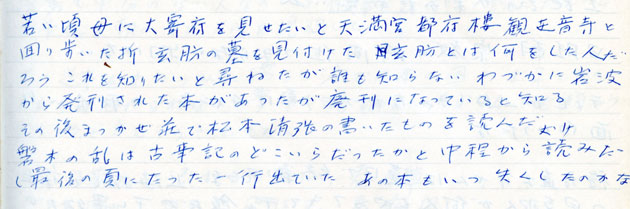 若い頃 母に大宰府を見せたいと天満宮 都府楼 観世音寺と
回り歩いた折 玄肪の墓を見付けた 玄肪とは何をした人だ
ろう これを知りたいと尋ねたが誰も知らない わづかに岩波
から発刊された本があったが廃刊になっていると知る
その後まつかぜ荘で松本清張の書いたものを読んだ
磐木の乱は古事記のどこいらだったかと中程から読みだ
し最後の頁にたった一行出ていた あの本もいつ失くしたのかな